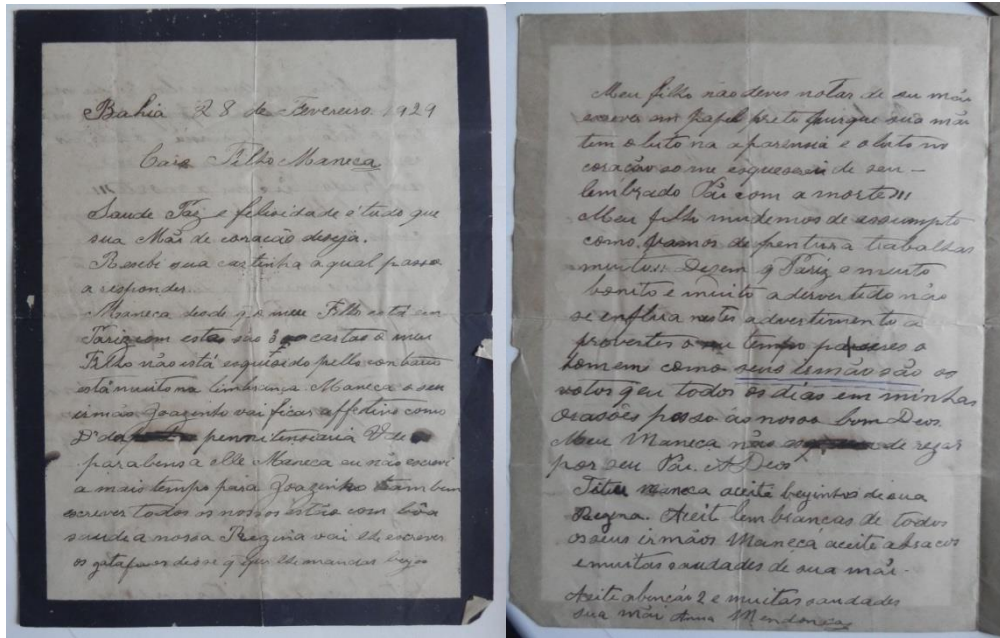 Bahia 28 de Fevereiro 1929
Caro Filho Maneca
Saude Paz e felicidade é tudo que
sua Mãi de coração deseja.
Recebi sua cartinha a qual passo
a responder.
Maneca desde q o meu Filho está em
Pariz com esta são 3 cartas o meu
Filho não está esquesido pello contrario
está muito na limbrança Maneca o seu
irmão Joazinho vai ficar affetivo como
Dr da pennitenciaria
parabens a elle Maneca eu não escrevi
a mais tempo para Joazinho tambem
escrever todos os nossos estão com bôa
saude a nossa Regina vai lhe escrever
os gatafunos disse q quer lhe mandar beijos
Meu filho não deves notar de su mãi
escever em papel preto purque sua mãi
tem o luto na aparensia e o luto no
coração so me esqueserei de seu
lembrado Pai com a morte!!!
Meu filho mudemos de assumpto
como vamos de pentura trabalhas
muito Dizem q Pariz e muito
bonito e muito advertido não
se enflua nestes advertimento a
provertes o tempo para seres o
homem como seus irmão são os
votos qeu todos os dias em minhas
orasões pesso ao nosso bom Deus.
Meu Maneca não de rezar
por seu Pai. A Deos
Titiu maneca aceite beginhos de sua
Regina. Aceite lembrancas de todos
os seus irmãos Maneca aceite abracos
e muitas saudades de sua mãi.
Aceite abencão 2 e muitas saudades
sua mãi Anna Mendonça